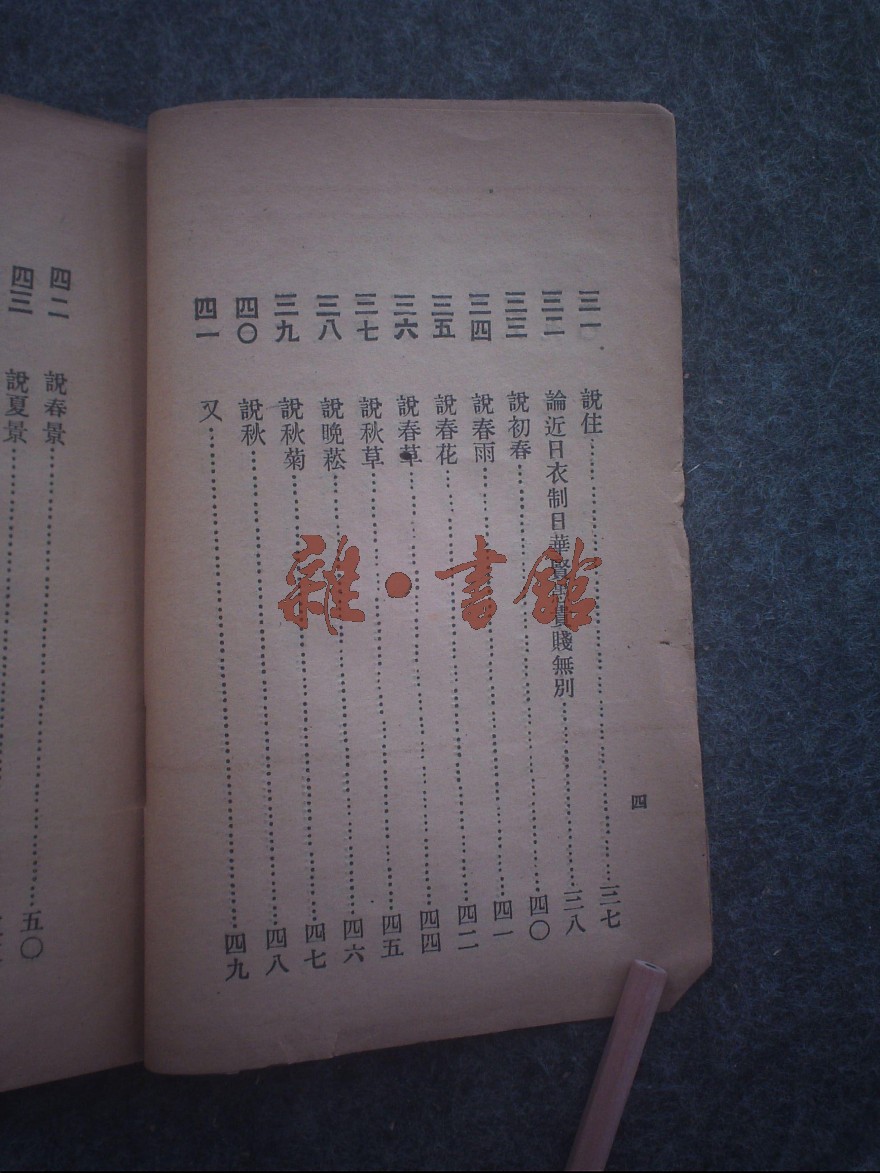 三一 說住 三七
三二 論近日衣制日華賢愚貴賤無別 三八
三三 說初春 四〇
三四 說春雨 四一
三五 說春花 四二
三六 說春草 四四
三七 說秋草 四五
三八 說晚菘 四六
三九 說秋菊 四七
四〇 說秋 四八
四一 又 四九
四
四二 說春景 五〇
四三 說夏景
雜·書館